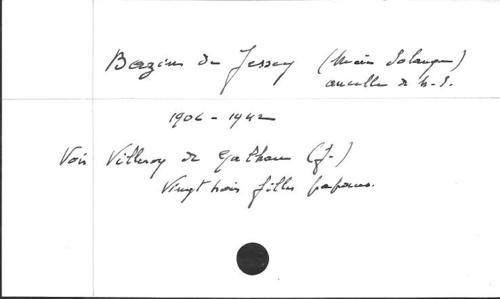 Bazin de Jessey (Marie Solange)
ancelle de N. S.
1906 - 1942
Voir Villeroy de Galhau (J.)
Vingt trois filles papous.